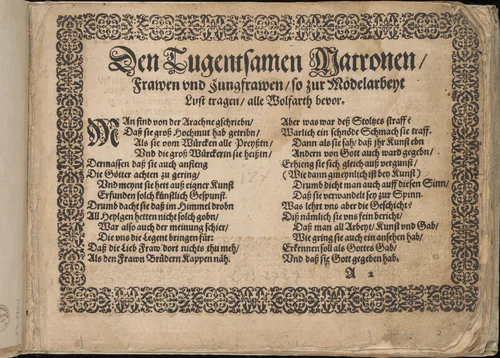 Den Tugentsamen Matronen/
Frawen vnd Jungfrawen/ so zur Mödelarbeyt
Lust tragen/ alle Wolfarth bevor.
MAn find von der Arachne gschriebn/
Daß sie groß Hochmut hab getribn/
Als sie vom Würcken alle Preyßtn/
Vnd die groß Würckerin sie heißtn/
Dermassen daß sie auch anfieng
Die Götter achten zu gering/
Vnd meynt sie hett auß eigner Kunst
Erfunden solch künstlich Gespunst.
Drumb dacht sie daß im Himmel drobn
All Heylgen hetten nicht solch gobn/
War also auch der meinung schier/
Die vns die Legent bringen für:
Daß die Lieb Fraw dort nichts thu meh/
Als den Frawn Brüdern Kappen näh.
Aber was war deß Stoltzes straff?
Warlich ein schnöde Schmach sie traff.
Dann als sie sah/ daß jhr Kunst ebn
Andern von Gott auch ward gegebn/
Erhieng sie sich gleich auß vergunst/
(Wie dann gmeynlich ist bey Kunst)
Drumb dicht man auch auff diesen Sinn/
Daß sie verwandelt sey zur Spinn.
Was lehrt vns aber die Geschicht?
Diß nämlich sie vns fein bericht/
Daß man all Arbeyt/ Kunst vnd Gab/
Wie gring sie auch ein ansehen hab/
Erkennen soll als Gottes Gab/
Vnd daß sie Gott gegeben hab.
A 2